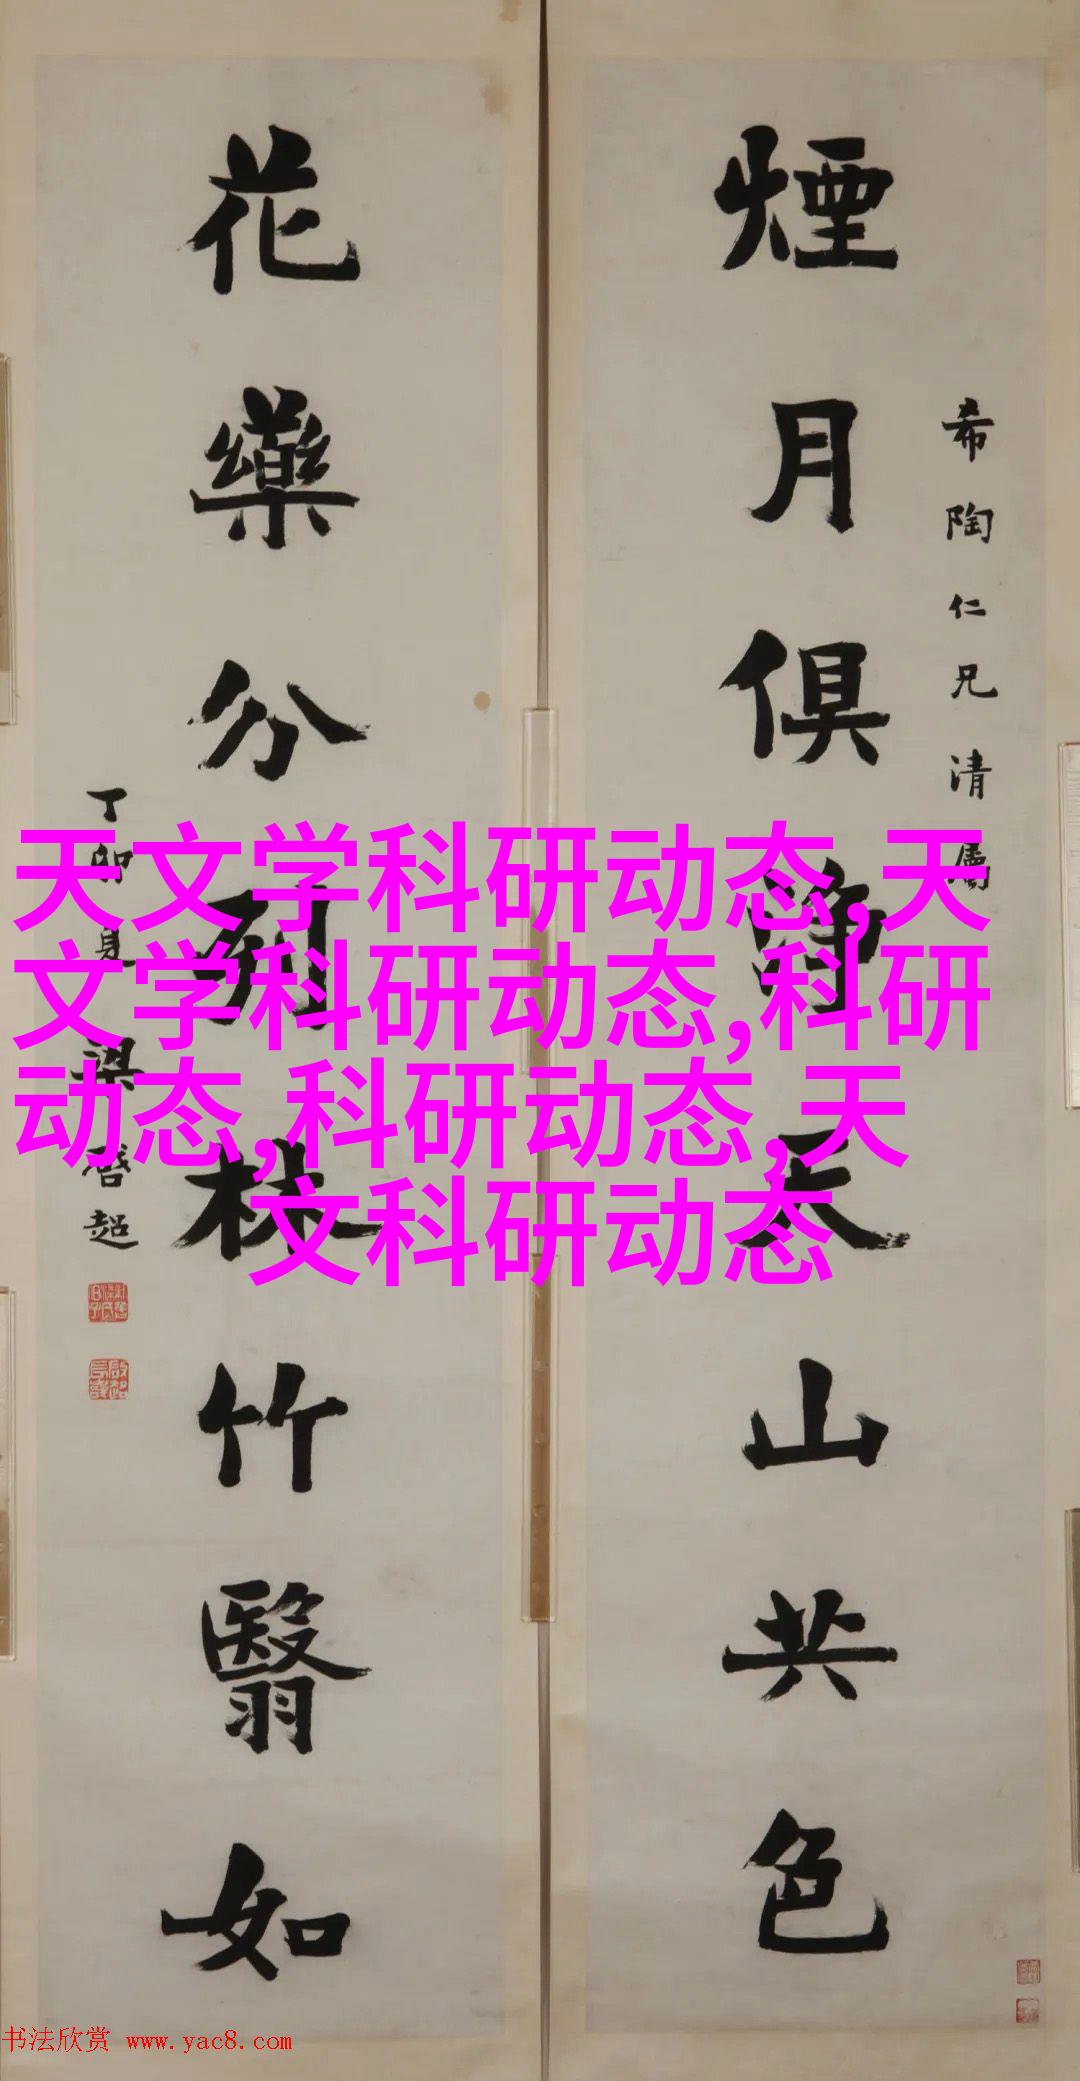 希陶仁兄清屬
煙月俱淨天山共色
花藥分列林竹翳如
丁卯夏梁啓超
天文学科研动态,天
文学科研动态,科研
动态,科研动态,天
文科研动态
书法欣赏 www.yac8.com